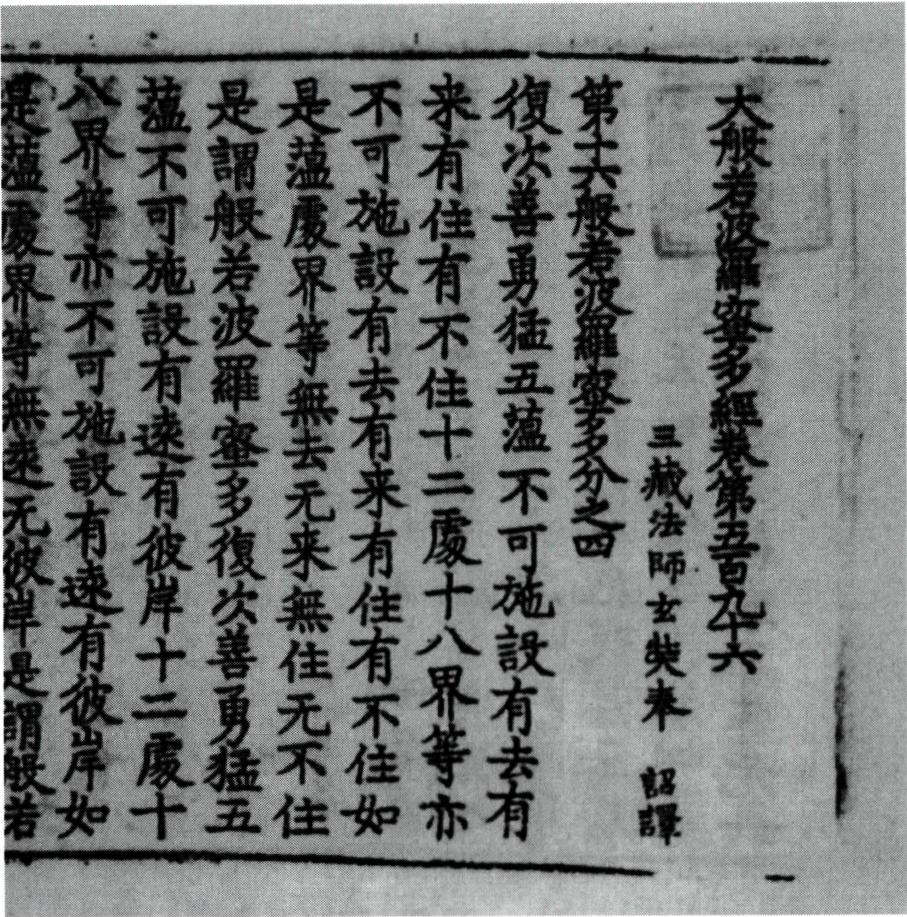 大般若波羅蜜多經卷第五百九十六
三藏法師玄奘奉 詔譯
第十六般若波羅蜜多分之四
復次善勇猛五蘊不可施設有去有
来有住有不住十二處十八界等亦
不可施設有去有来有住有不住如
是蘊處界等無去无来無住无不住
是謂般若波羅蜜多復次善勇猛五
蘊不可施設有遠有彼岸十二處十
八界等亦不可施設有遠有彼岸如
是蘊處界等無遠无彼岸是謂般若